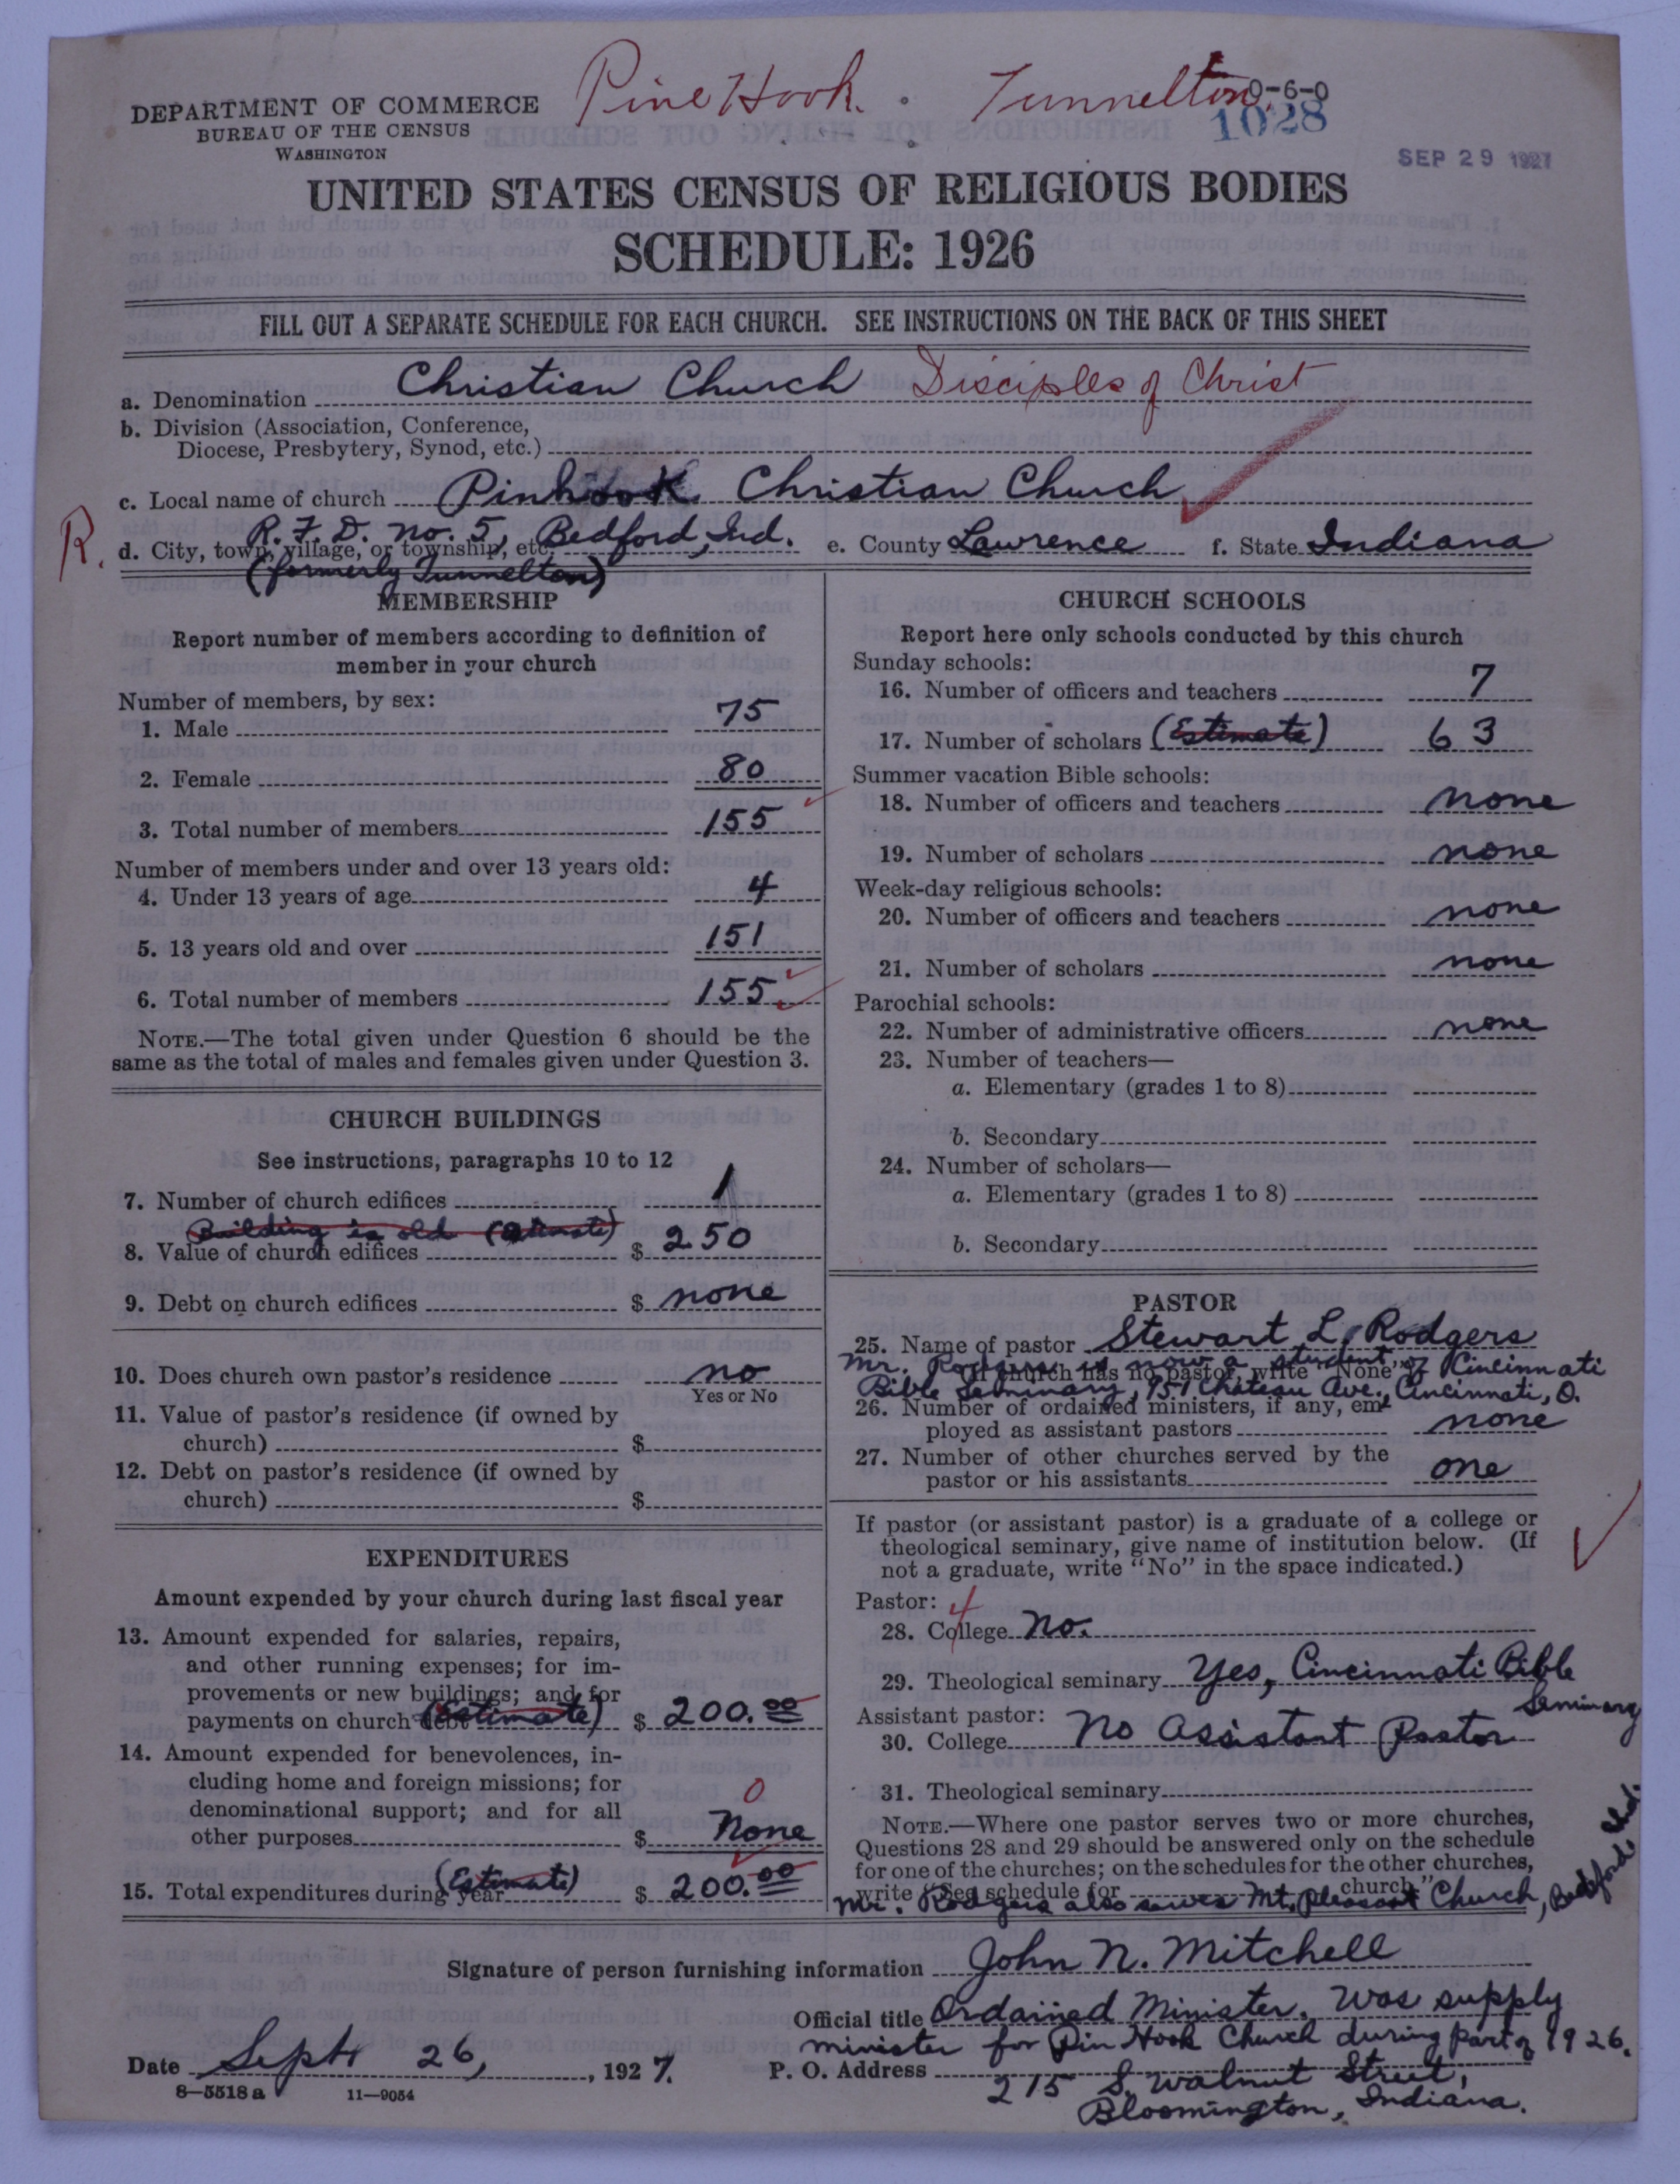 Pine Hook. Tunnelton
0-6-0
1028
DEPARTMENT OF COMMERCE
BUREAU OF THE CENSUS
WASHINGTON
SEP 29 1927
UNITED STATES CENSUS OF RELIGIOUS BODIES
SCHEDULE: 1926
FILL OUT A SEPARATE SCHEDULE FOR EACH CHURCH. SEE INSTRUCTIONS ON THE BACK OF THIS SHEET
a. Denomination Christian Church Disciples of Christ
b. Division (Association, Conference,
Diocese, Presbytery, Synod, etc.)
c. Local name of church Pinhook Christian Church
R. d. City, town, village, or township, etc. R.F.D. no. 5, Bedford, Ind. e. County Lawrence f. State Indiana
(formerly Tunnelton)
MEMBERSHIP
Report number of members according to definition of
member in your church
Number of members, by sex:
1. Male 75
2. Female 80
3. Total number of members 155
Number of members under and over 13 years old:
4. Under 13 years of age 4
5. 13 years old and over 151
6. Total number of members 155
NOTE.—The total given under Question 6 should be the
same as the total of males and females given under Question 3.
CHURCH BUILDINGS
See instructions, paragraphs 10 to 12
7. Number of church edifices 1
Building is old (Estimate)
8. Value of church edifices $ 250
9. Debt on church edifices $ none
10. Does church own pastor's residence no
Yes or No
11. Value of pastor's residence (if owned by
church) $
12. Debt on pastor's residence (if owned by
church) $
EXPENDITURES
Amount expended by your church during last fiscal year
13. Amount expended for salaries, repairs,
and other running expenses; for im-
provements or new buildings; and for
payments on church debt (Estimate) $ 200.00
14. Amount expended for benevolences, in-
cluding home and foreign missions; for
denominational support; and for all 0
other purposes $ None
15. Total expenditures during year (Estimate) $ 200.00
CHURCH SCHOOLS
Report here only schools conducted by this church
Sunday schools:
16. Number of officers and teachers 7
17. Number of scholars (Estimate) 63
Summer vacation Bible schools:
18. Number of officers and teachers none
19. Number of scholars none
Week-day religious schools:
20. Number of officers and teachers none
21. Number of scholars none
Parochial schools:
22. Number of administrative officers none
23. Number of teachers—
a. Elementary (grades 1 to 8)
b. Secondary
24. Number of scholars—
a. Elementary (grades 1 to 8)
b. Secondary
PASTOR
25. Name of pastor Stewart L. Rodgers
Mr. Rodgers is now a student of Cincinnati
If church has no pastor, write "None"
Bible Seminary, 951 Chateau Ave., Cincinnati, O.
26. Number of ordained ministers, if any, em-
ployed as assistant pastors none
27. Number of other churches served by the
pastor or his assistants one
If pastor (or assistant pastor) is a graduate of a college or
theological seminary, give name of institution below. (If
not a graduate, write "No" in the space indicated.)
Pastor: 4
28. College No.
29. Theological seminary Yes, Cincinnati Bible
Seminary
Assistant pastor:
30. College No Assistant Pastor
31. Theological seminary
NOTE.—Where one pastor serves two or more churches,
Questions 28 and 29 should be answered only on the schedule
for one of the churches; on the schedules for the other churches,
write "See schedule for church."
Mr. Rodgers also serves Mt. Pleasant Church, Bedford, Ind.
Signature of person furnishing information John N. Mitchell
Official title Ordained Minister. Was supply
minister for Pin Hook Church during part of 1926.
Date Sept. 26, 1927. P. O. Address 215 S. Walnut Street,
Bloomington, Indiana.
8-5518 a 11-9054